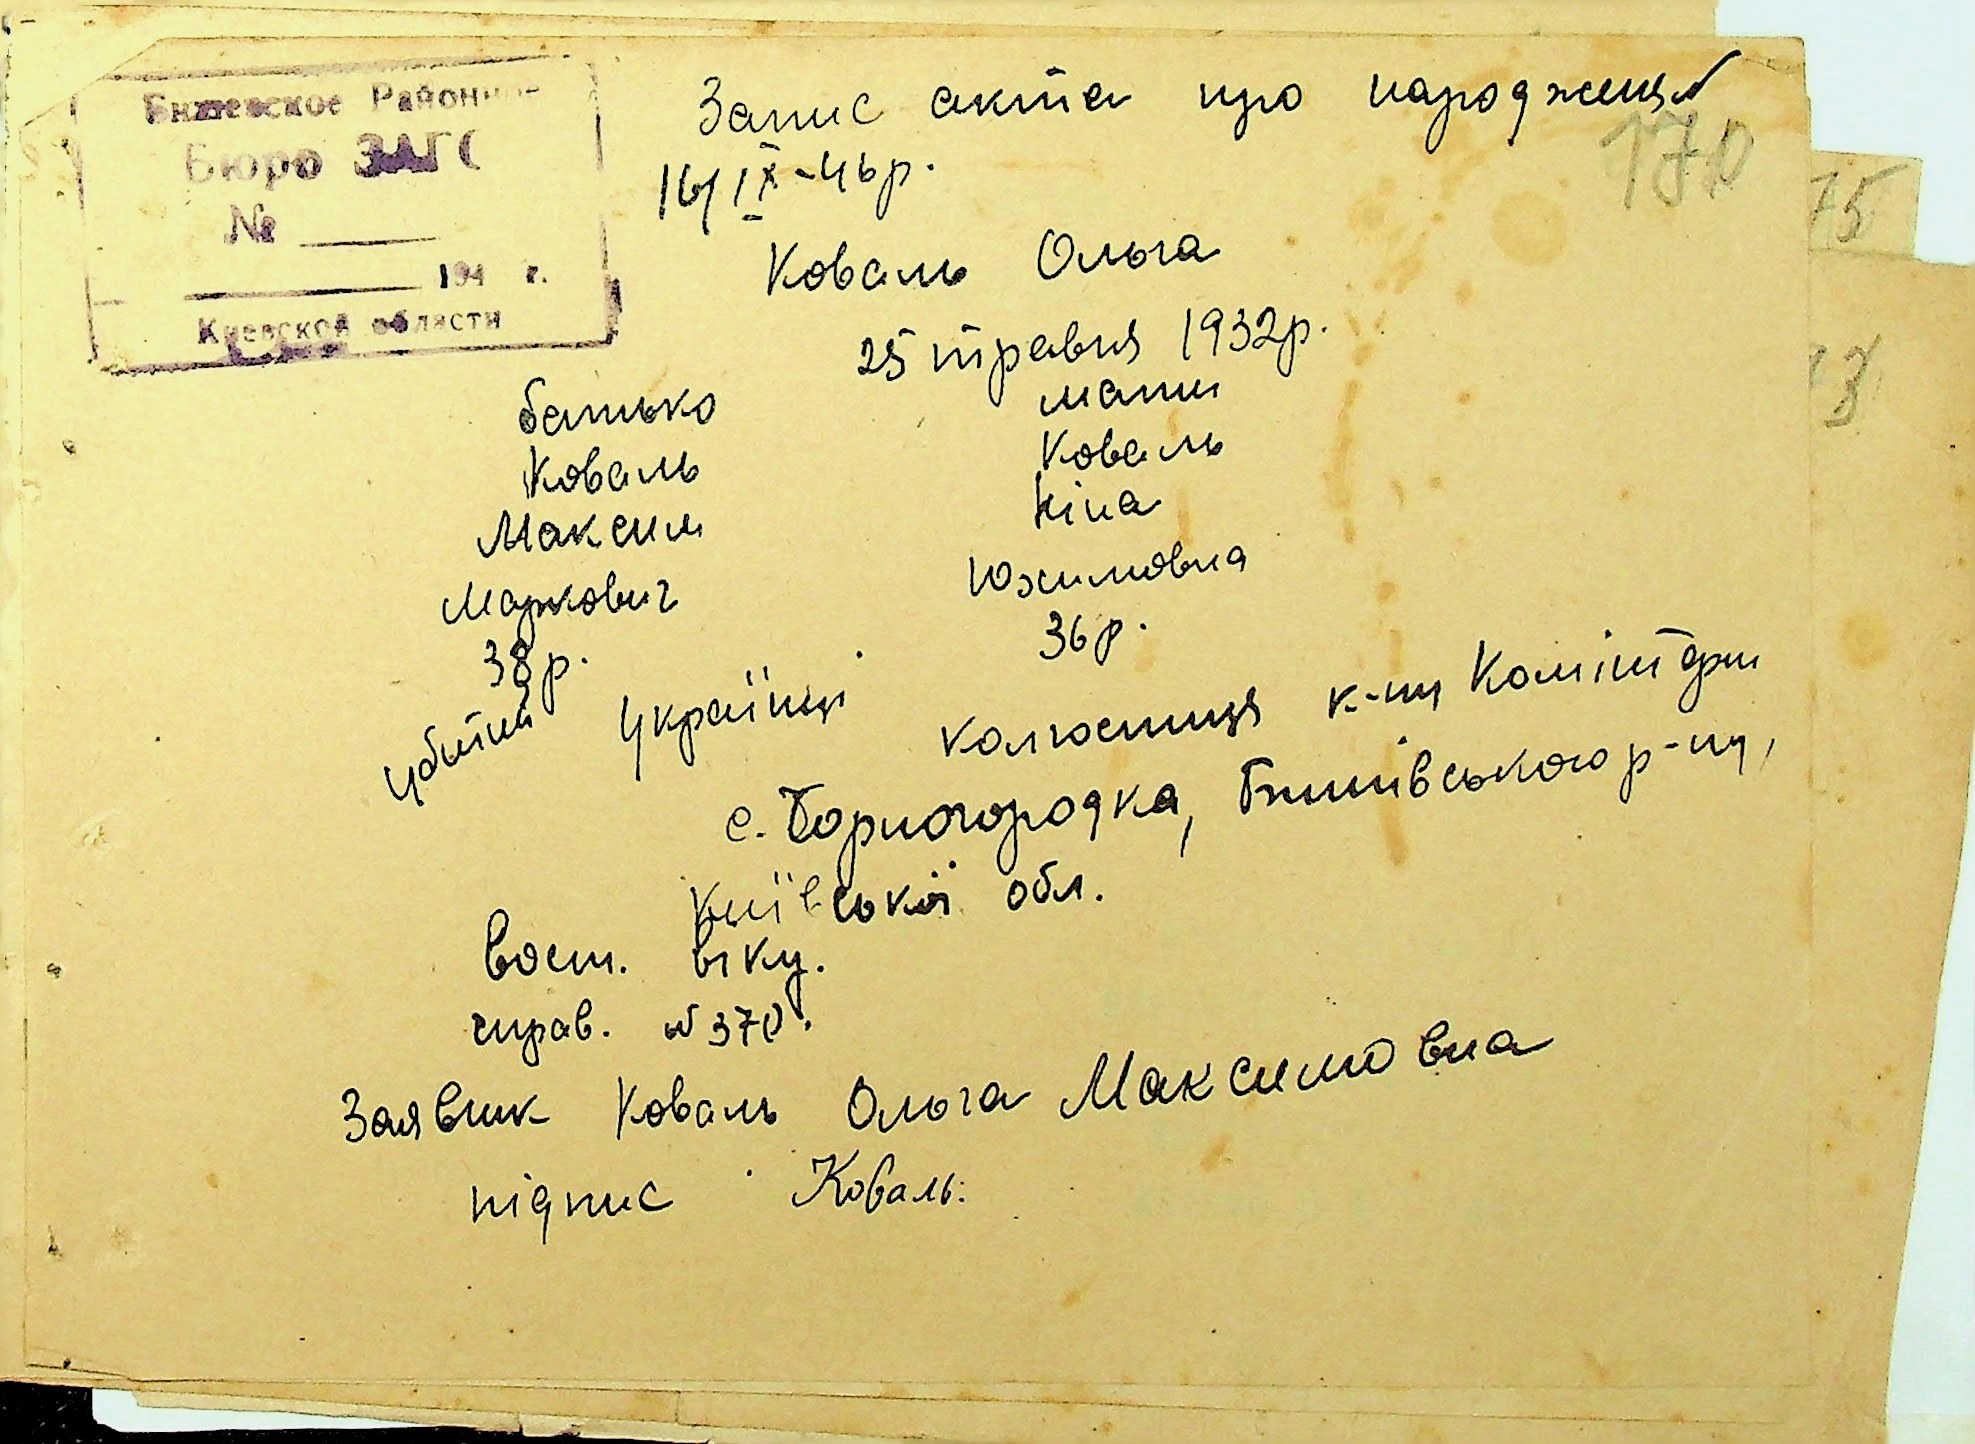 Бишевское Районно-
Бюро ЗАГС
№
194 г.
Киевской области
Запис акта про народження
16/IX-46р.
170
75
Коваль Ольга
25 травня 1932р.
батько мати
Коваль Коваль
Максим Ніна
Маркович Юхимовна
38р. 36р.
убитий Українці
колгоспниця к-пу Комінтерн
с. Чорногородка, Бишівського р-ну,
Київської обл.
Вост. віку.
справ. № 370.
Заявник Коваль Ольга Максимовна
підпис Коваль.